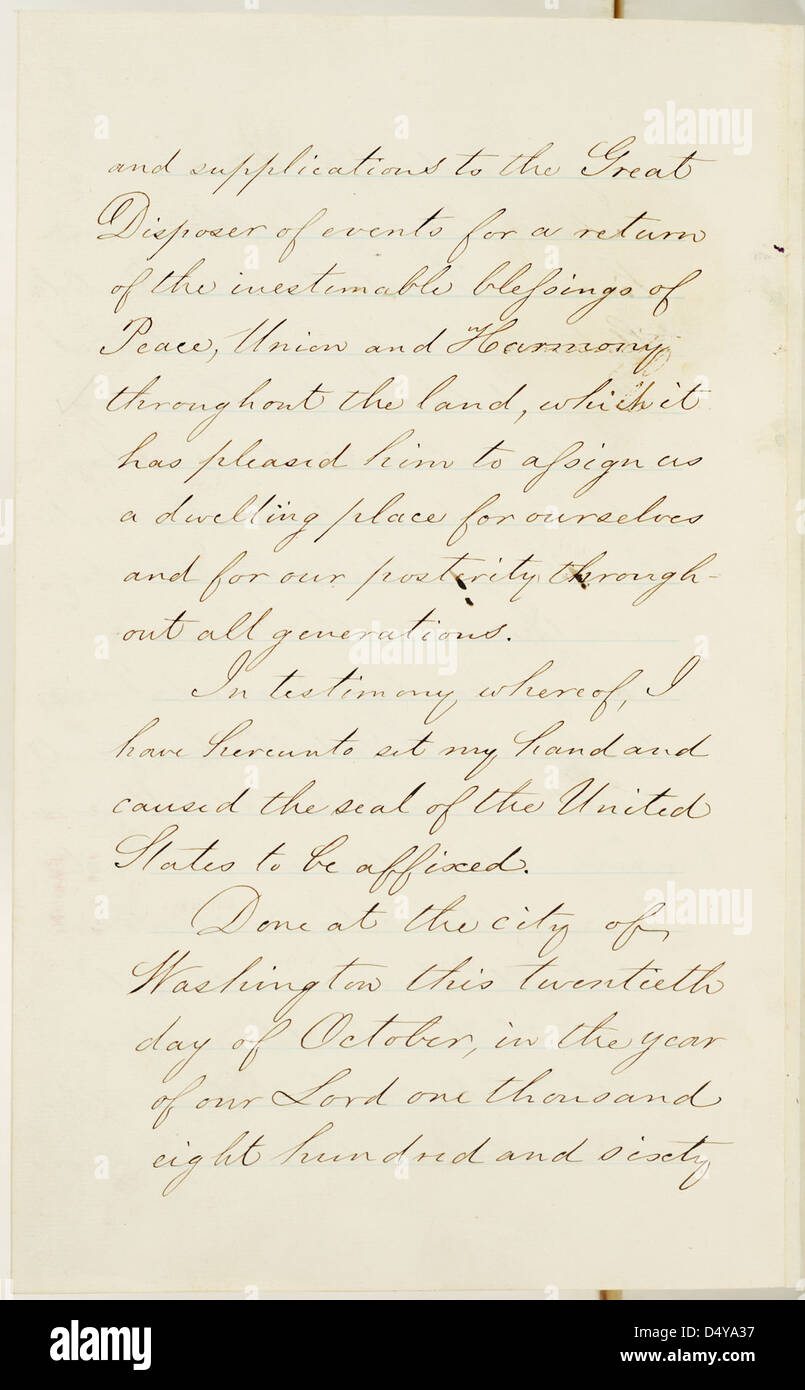 and supplications to the Great
Disposer of events for a return
of the inestimable blessings of
Peace, Union and Harmony
throughout the land, which it
has pleased him to assign as
a dwelling place for ourselves
and for our posterity through-
out all generations.
In testimony whereof, I
have hereunto set my hand and
caused the seal of the United
States to be affixed.
Done at the city of
Washington this twentieth
day of October, in the year
of our Lord one thousand
eight hundred and sixty
alamy
alamy
alamy
alamy
Image ID: D4YA37
www.alamy.com